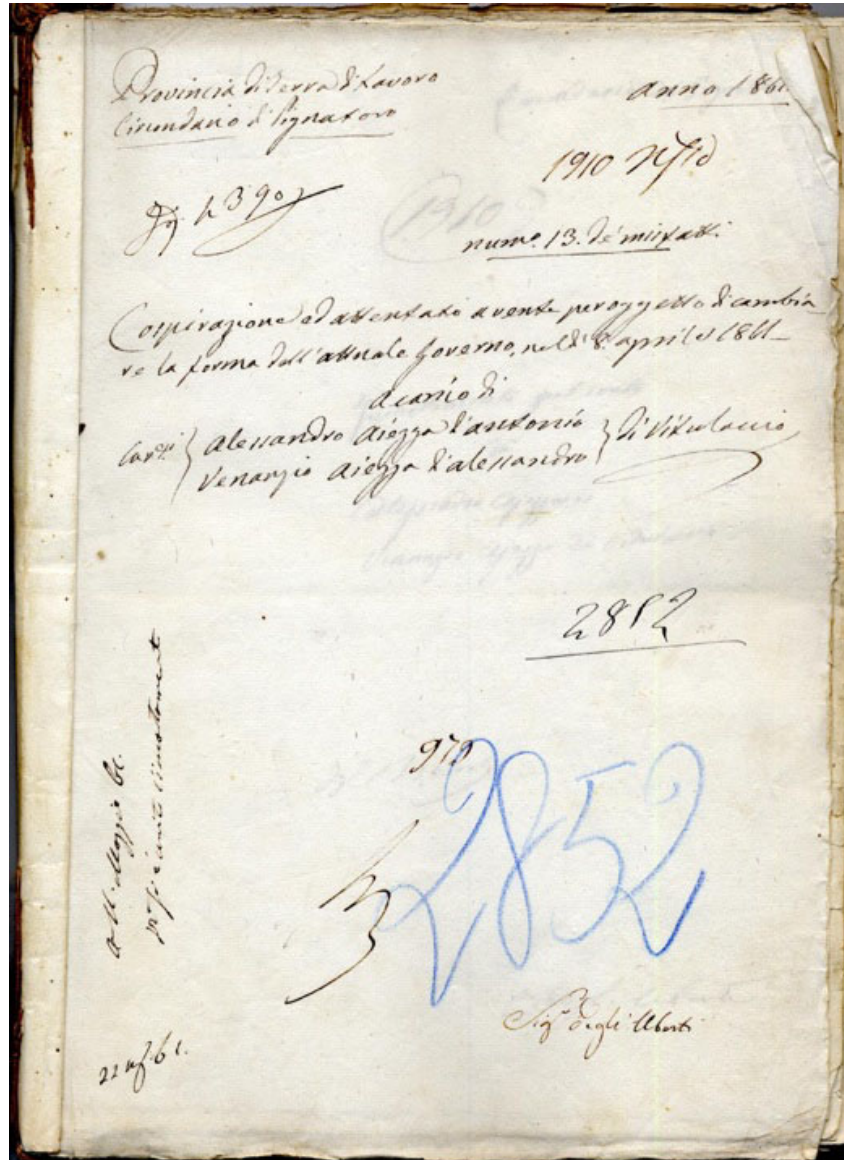 Provincia di Terra di Lavoro
Circondario di Pignataro
anno 1861
1910
4390
(1910)
num.º 13. de' misfatti
Cospirazione ed attentato avente per oggetto di cambia-
re la forma dell'attuale Governo, nel dì 8 aprile 1861-
a carico di
Alessandro Aiezza d'Antonio
Venanzio Aiezza d'Alessandro
di Vitulaccio
2852
970
2852
Sig.r degli Uberti